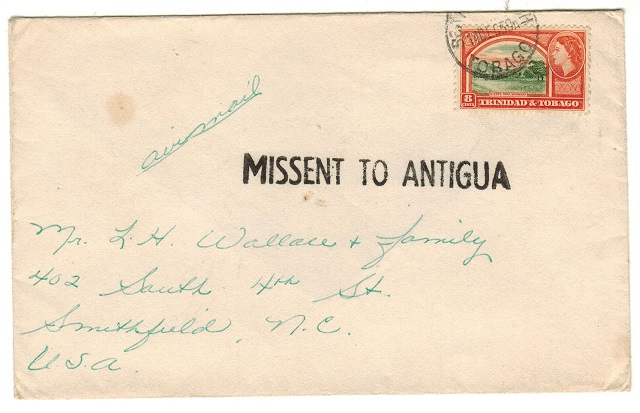 TOBAGO
8
CENTS
TRINIDAD & TOBAGO
air mail
MISSENT TO ANTIGUA
Mr. L. H. Wallace & family
402 South 4th St.
Smithfield, N.C.
U.S.A.